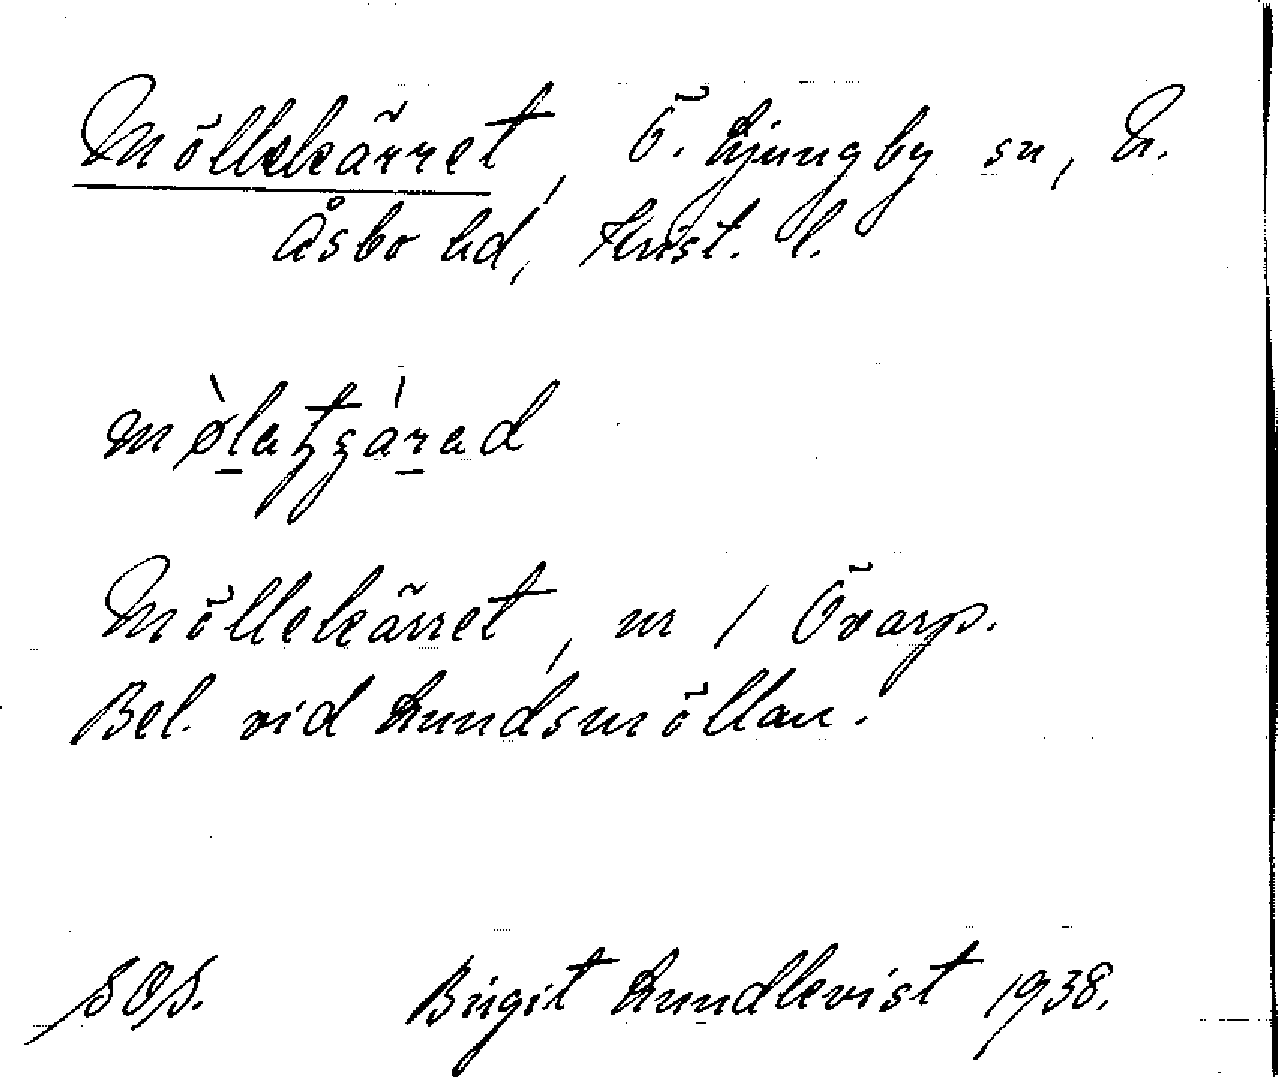 Möllekärret, Ö. Ljungby sn, N.
Åsbo hd, Krist. l.
Möllekärret, nr 1 Övarp.
Bel. vid Lundsmöllan.
SOS. Birgit Lundkvist 1938.